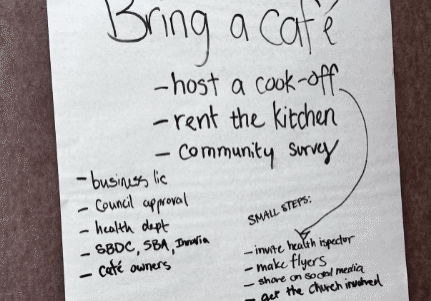 Bring a café
- host a cook-off
- rent the kitchen
- community survey
- business lic
- Council approval
- health dept
- SBDC, SBA, Innovia
- café owners
SMALL STEPS:
- invite health ispector
- make flyers
- share on social media
- get the church involved